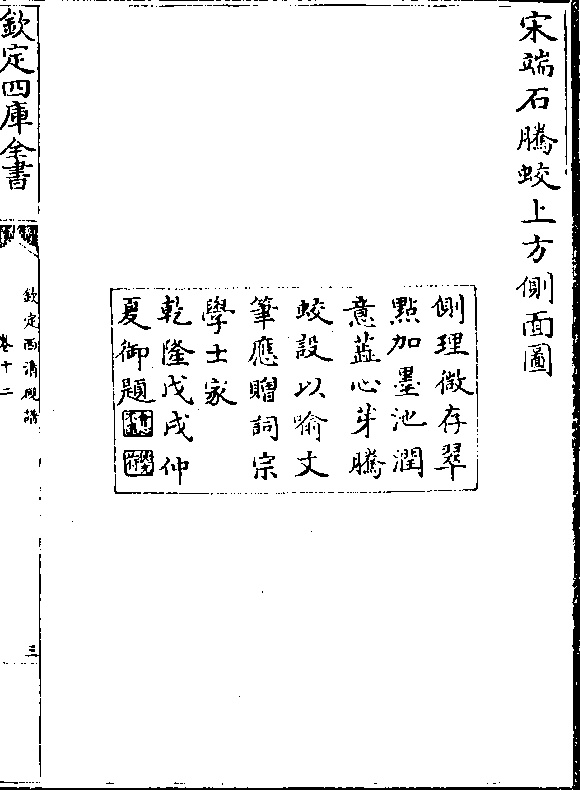 宋端石騰蛟上方側面圖
側理微存翠
點加墨池潤
意蓝心芽騰
蛟設以喻文
筆應贈詞宗
學士家
乾隆戊戌仲
夏御題
欽定四庫全書
欽定西清硯譜
卷十二
三